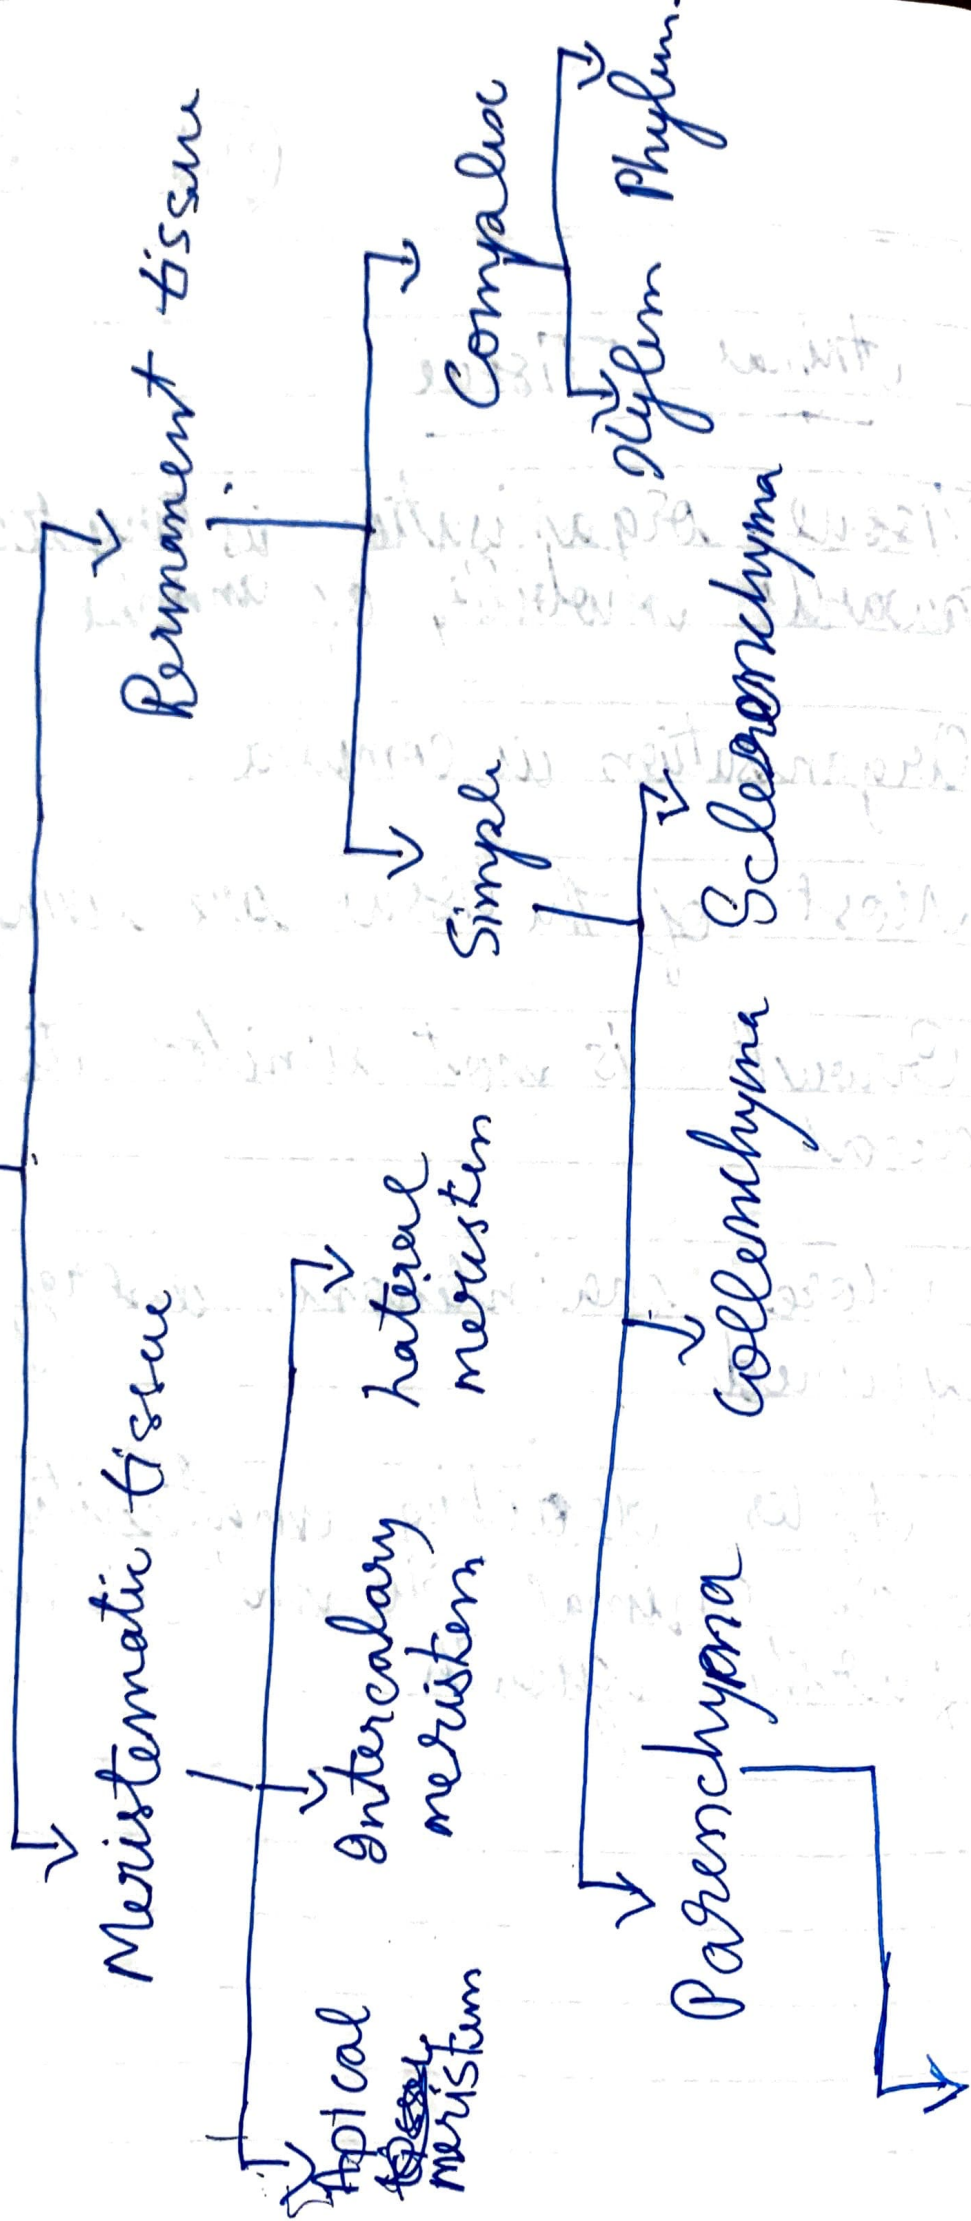 Meristematic tissue
Permanent tissue
Apical
meristem
Intercalary
meristem
Lateral
meristem
Simple
Complex
Parenchyma
Collenchyma
Sclerenchyma
Xylem
Phylum